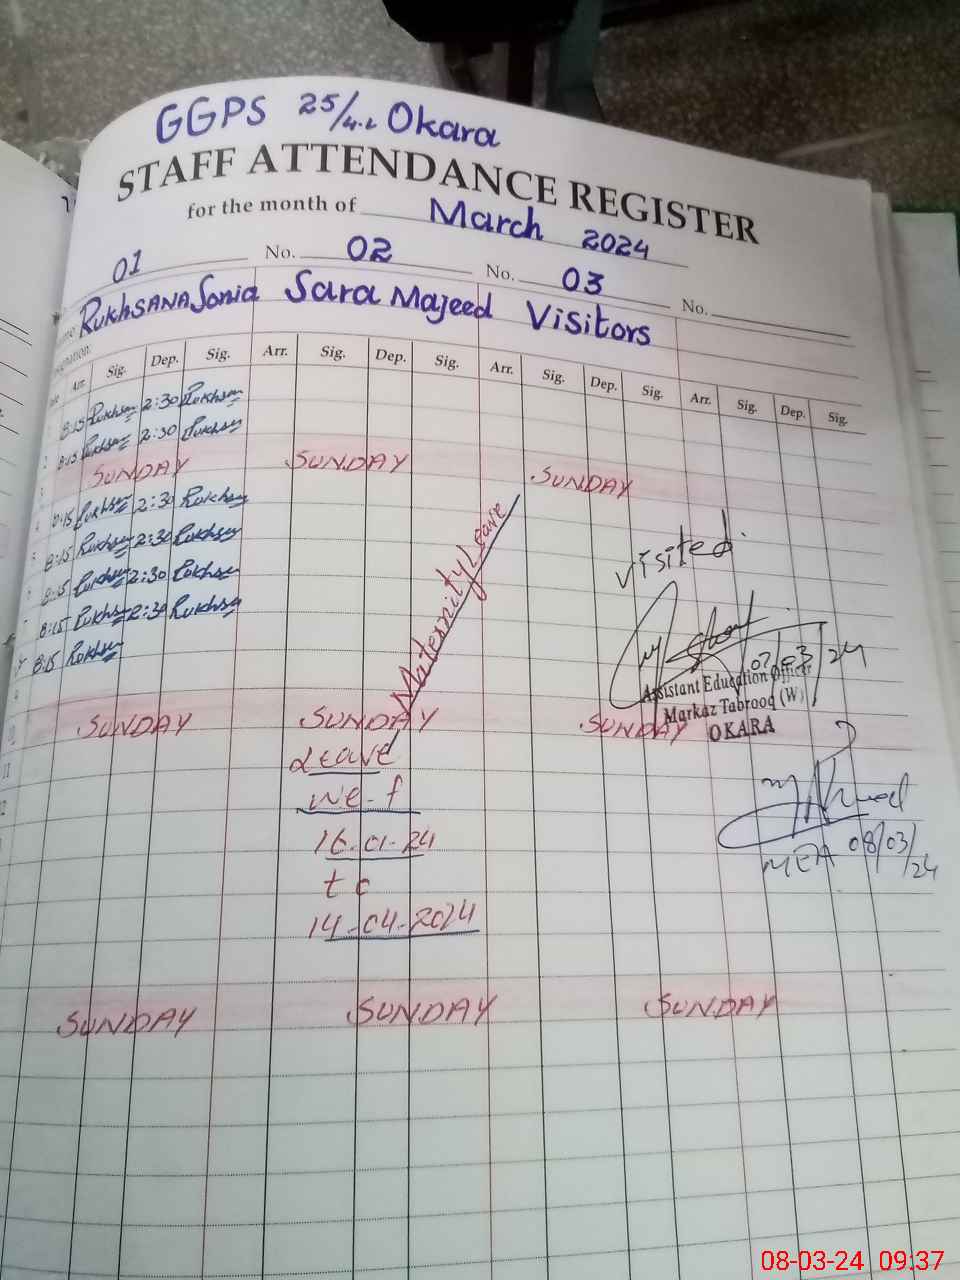 GGPS 25/4.L Okara
STAFF ATTENDANCE REGISTER
for the month of March 2024
01 No. 02 No. 03 No.
RUKHSANA Sonia Sara Majeed Visitors
Arr. Sig. Dep. Sig. Arr. Sig. Dep. Sig. Arr. Sig. Dep. Sig. Arr. Sig. Dep. Sig.
8:15 Rukhsana 2:30 Rukhsana
2 8:15 Rukhsana 2:30 Rukhsana
3 SUNDAY SUNDAY SUNDAY
8:15 Rukhsana 2:30 Rukhsana
8:15 Rukhsana 2:30 Rukhsana
8:15 Rukhsana 2:30 Rukhsana
8:15 Rukhsana 2:30 Rukhsana
8:15 Rukhsana
Maternity Leave
visited.
07/03/24
Assistant Education Officer
Markaz Tabrooq (W)
OKARA
9
10 SUNDAY SUNDAY SUNDAY
11 Leave
12 w.e.f
16-01-24
to
14-04-2024
MEA 08/03/24
SUNDAY SUNDAY SUNDAY
08-03-24 09:37